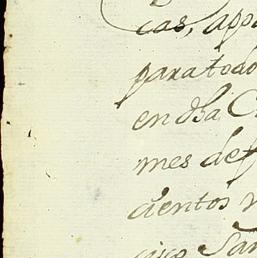 cas, apo
para todo
en dha C
mes de f
cientos v
cisco San